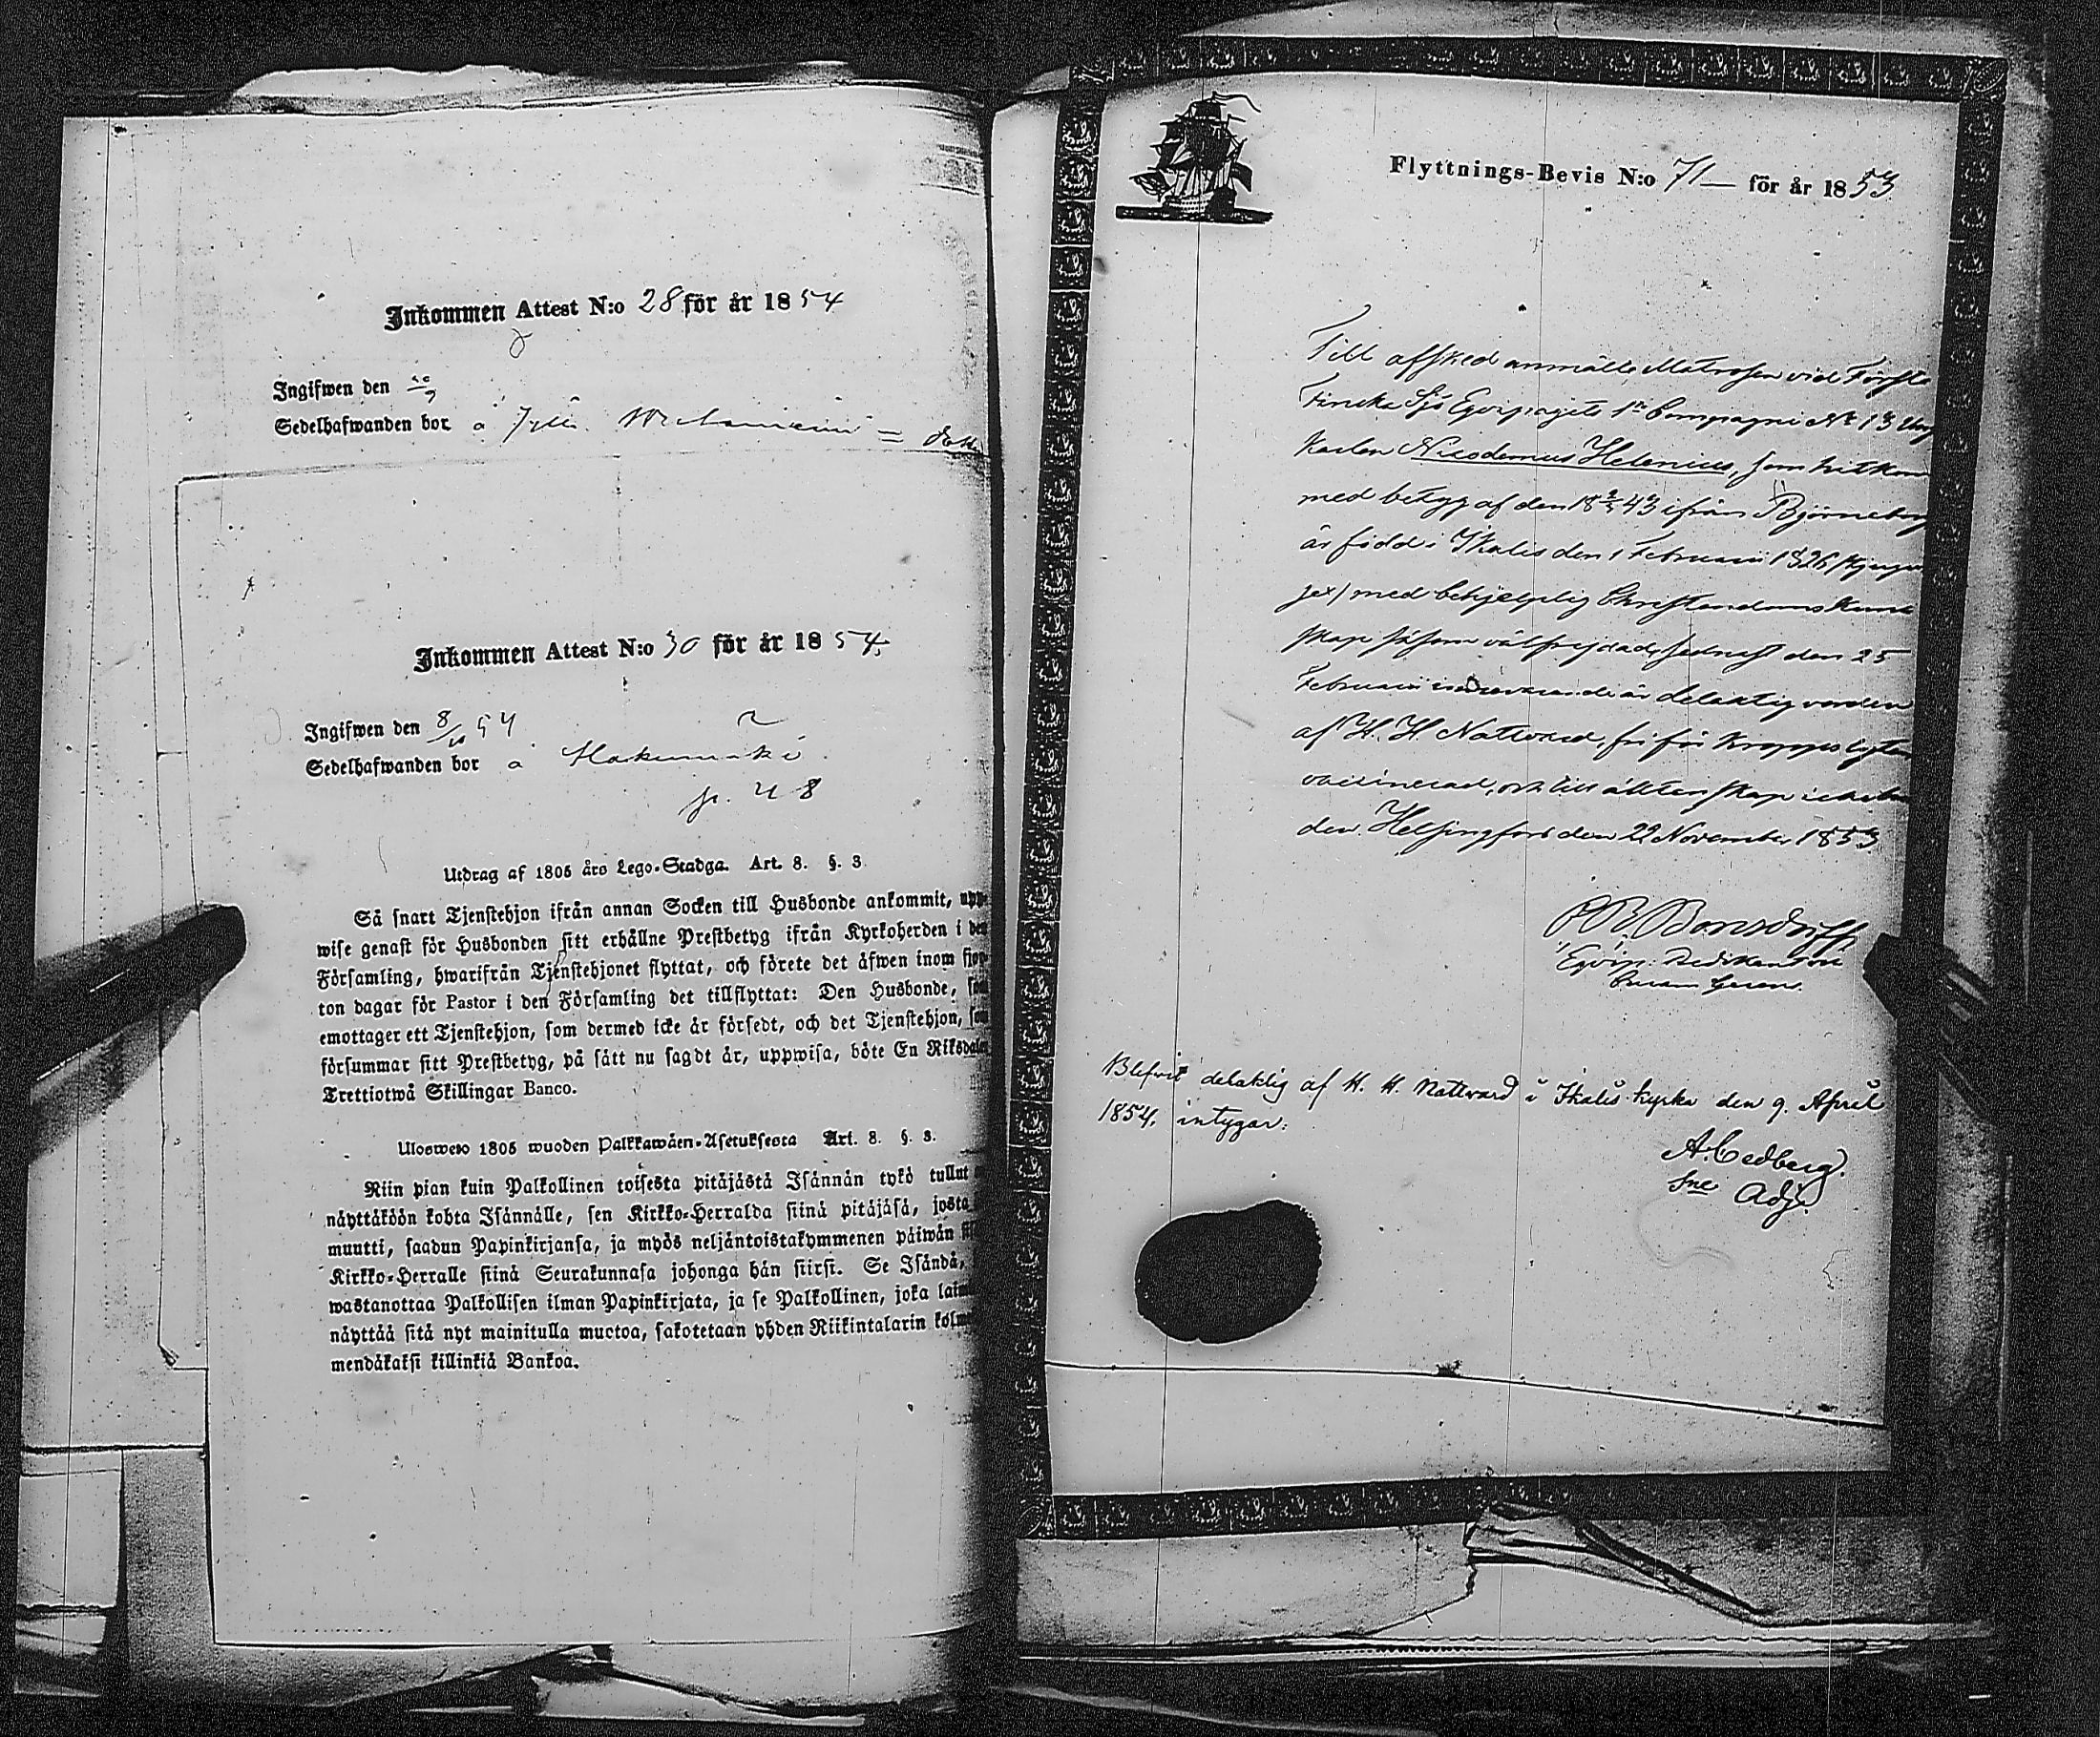 Inkommen Attest N:o 28 för år 1854
Ingifwen den
Sedelhafwanden bor å
Inkommen Attest N:o 30 för år 1854.
Ingifwen den 8/10 54
Sedelhafwanden bor å
p. 48
Utdrag af 1805 års Lego-Stadga. Art. 8. §. 3.
Så snart Tjenstehjon ifrån annan Socken till Husbonde ankommit, upp-
wise genast för Husbonden sitt erhållne Prestbetyg ifrån Kyrkoherden i den
Församling, hwarifrån Tjenstehjonet flyttat, och förete det äfwen inom fjor-
ton dagar för Pastor i den Församling det tillflyttat: Den Husbonde, som
emottager ett Tjenstehjon, som dermed icke är försedt, och det Tjenstehjon, som
försummar sitt Prestbetyg, på sätt nu sagdt är, uppwisa, böte En Riksdaler
Trettiotwå Skillingar Banco.
Ulosweto 1805 wuoden Palkkawäen-Asetuksesta Art. 8. §. 3.
Niin pian kuin Palkollinen toisesta pitäjästä Isännän tykö tullut
näyttäköön kohta Isännälle, sen Kirkko-Herralda siinä pitäjäsä, josta
muutti, saadun Papinkirjansa, ja myös neljäntoistakymmenen päiwän
Kirkko-Herralle siinä Seurakunnasa johonga hän siirsi. Se Isändä,
wastanottaa Palkollisen ilman Papinkirjata, ja se Palkollinen, joka
näyttää sitä nyt mainitulla muotoa, sakotetaan yhden Riikintalarin
mendäkaksi killinkiä Bankoa.
Flyttnings-Bevis N:o 71 — för år 1853
Till afsked anmälte Matrosen vid Första
Finska Sjö Equipagets 1:a Compagni No 13 Ung
Karlen Nicodemus Helenius, som hitkom
med betyg af den 18 43 ifrån Björneborg
är född i Ikalis den 1 Februarii 1826
sex) med behjelplig Christendoms Kun
skap såsom välfrejdad, sednast den 25
Februarii innevarande år delaktig vorden
af H. H. Nattvard, fri för Kroppslyten
vaccinerad, och till äktenskap
den. Helsingfors den 22 November 1853
Bonsdorff
Equip. Predikant
Blifvit delaktig af H. H. Nattvard i Ikalis kyrka den 9. April
1854. intygar:
A. Cedberg.
Sne Adj.